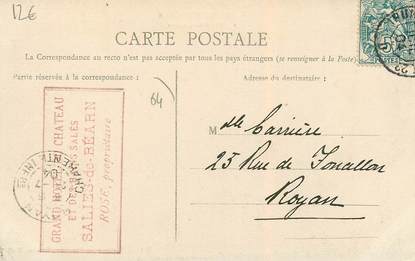 12€
CARTE POSTALE
La Correspondance au recto n'est pas acceptée par tous les pays étrangers (se renseigner à la Poste)
Partie réservée à la correspondance:
Adresse du destinataire:
64
GRAND HOTEL DU CHATEAU
ET DES BAINS SALÉS
SALIES-de-BÉARN
ROSE, propriétaire
Mlle Carrière
23 Rue de Foncillon
Royan